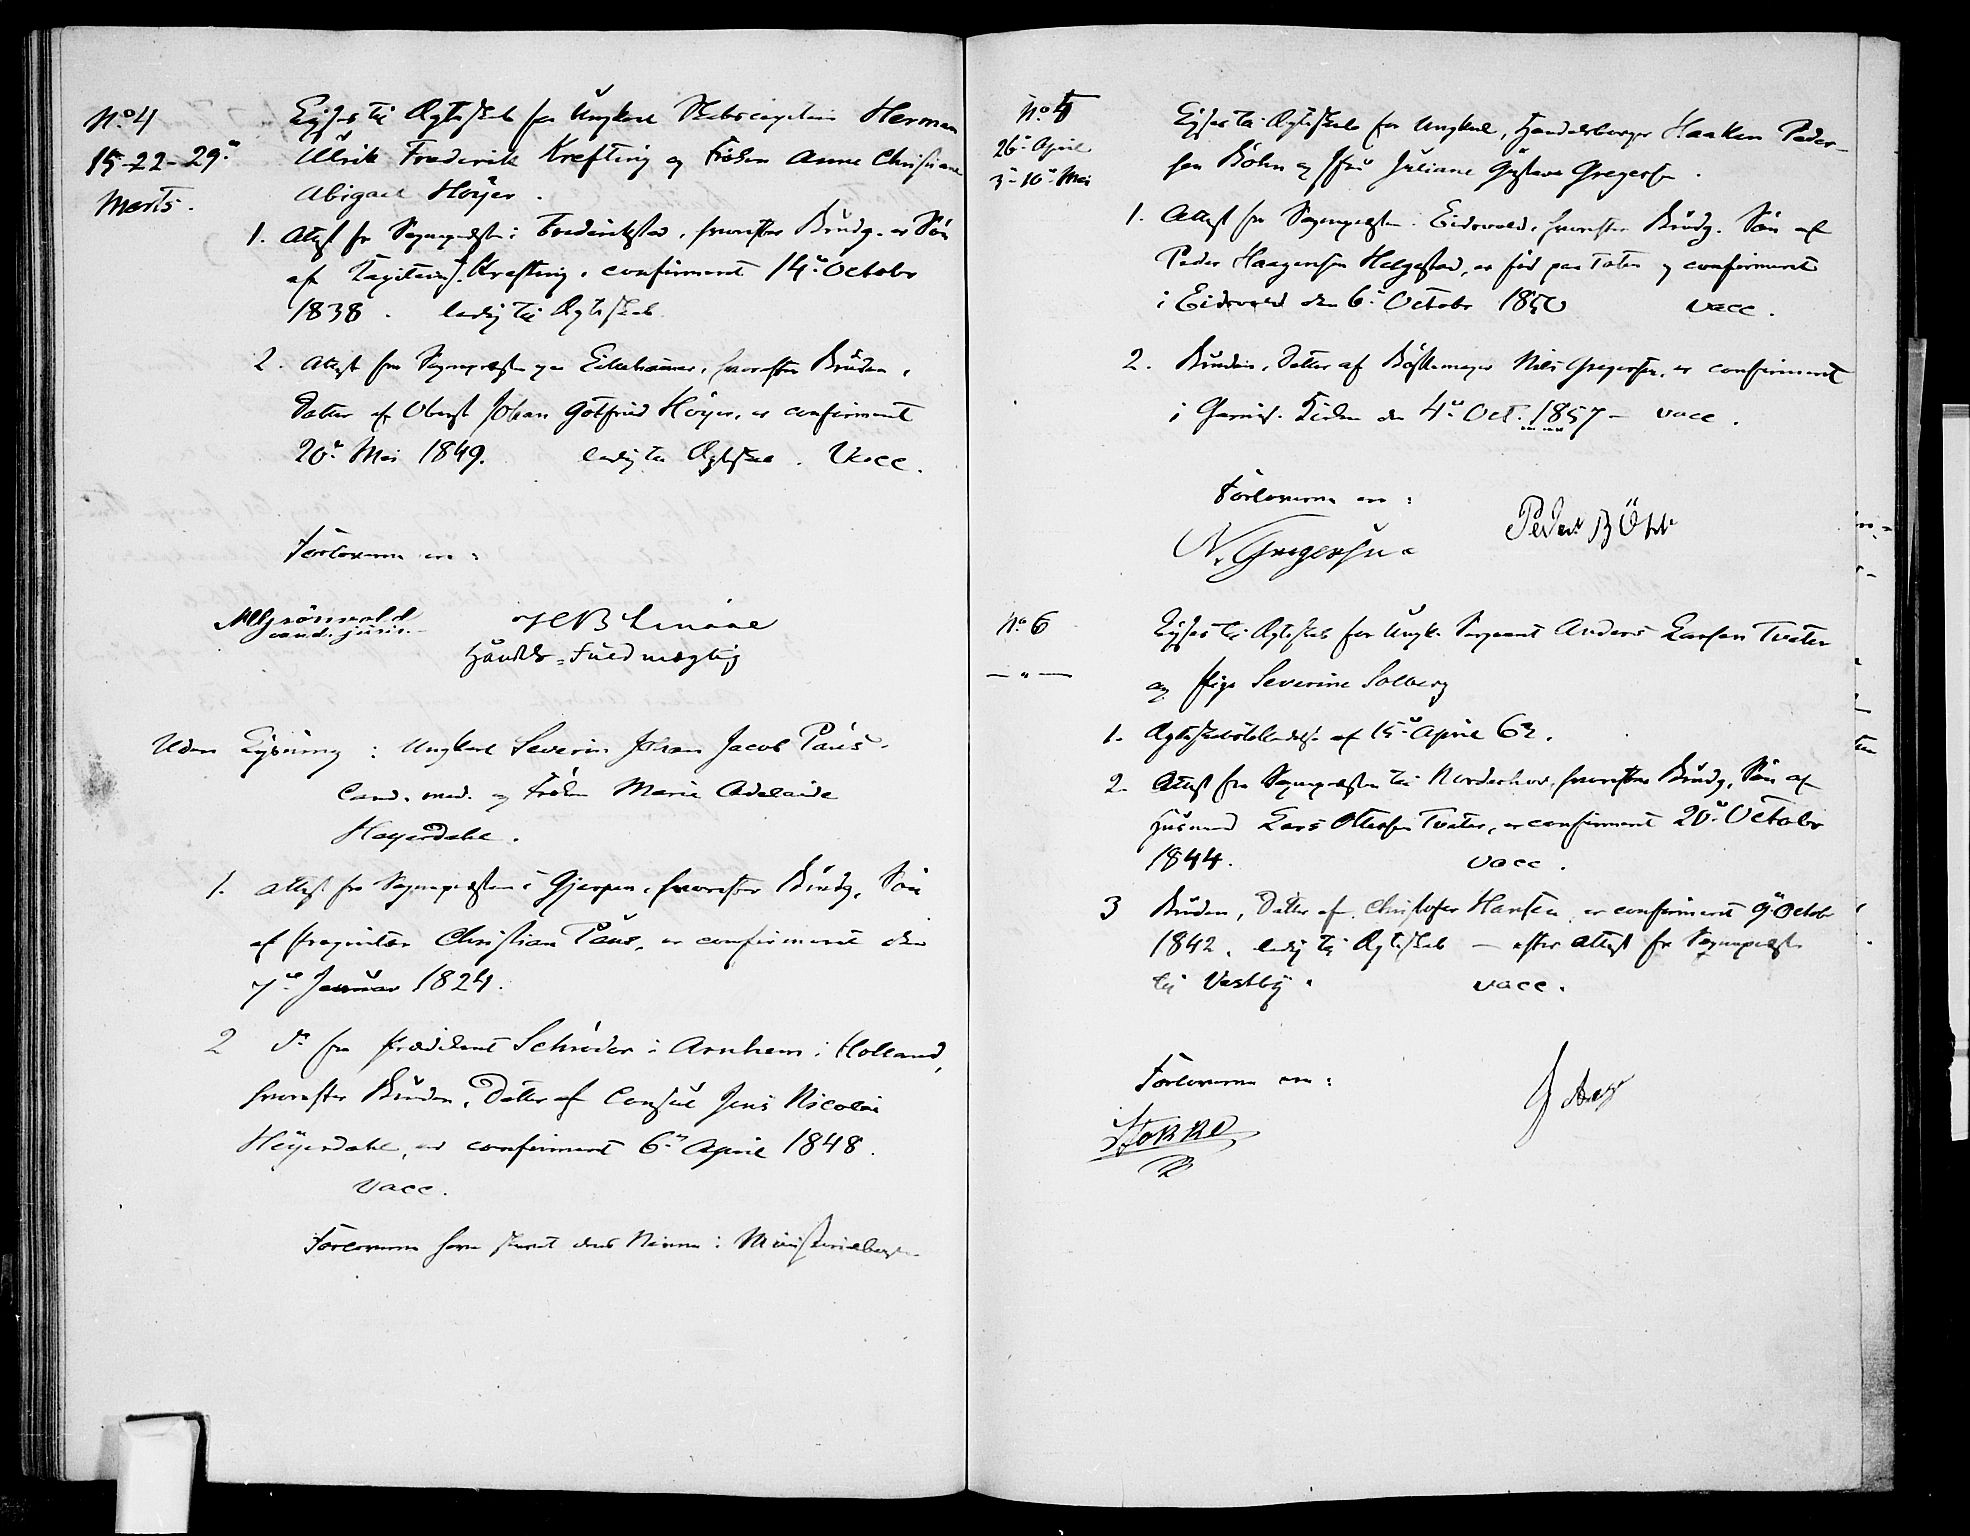 No 4
15-22-29.
Marts.
Lyses til Ægteskab for Ungkarl Stabscapitain Herman
Ulrik Frederik Krefting og Frøken Anne Christiane
Abigael Høyer.
1. Attest fra Sognepræsten i Frederikstad, hvorefter Brudg. er Søn
af Capitain J. Krefting, confirmeret 14de October
1838. ledig til Ægteskab
2. Attest fra Sognepræsten paa Lillehammer, hvorefter Bruden,
Datter af Oberst Johan Gotfried Høyer, er confirmeret
20de Mai 1849. ledig til Ægteskab. Vacc.
Forloverne ere:
Grønvold
cand. juris.
Handels-Fuldmægtig
Uden Lysning: Ungkarl Severin Johan Jacob Paus,
Cand. med. og Frøken Marie Adelaide
Heyerdahl.
1. Attest fra Sognepræsten i Gjerpen, hvorefter Brudg. Søn
af Proprietær Christian Paus, er confirmeret den
7de Januar 1824.
2 do fra Præsident Schrøder i Arnhem i Holland,
hvorefter Bruden, Datter af Consul Jens Nicolai
Heyerdahl, er confirmeret 6te April 1848.
Vacc.
Forloverne have skrevet deres Navne i Ministerialbogen
No 5
26de April
3-10de Mai
Lyses til Ægteskab for Ungkarl, Handelsborger Haaken Peder-
sen Bøhn og Jfru Juliane Gustava Gregersen.
1. Attest fra Sognepræsten i Eidsvold, hvorefter Brudg. Søn af
Peder Haagensen Helgestad, er født paa Toten og confirmeret
i Eidsvold den 6te October 1850 vacc.
2. Bruden, Datter af Bøssemager Nils Gregersen, er confirmeret
i Garnis. Kirken den 4de Oct. 1857 - vacc.
Forloverne ere:
N. Gregersen
Peder Bøhn
No 6
— " —
Lyses til Ægteskab for Ungk. Sergeant Anders Larsen Tveter
og Pige Severine Solberg
1. Ægteskabstilladelse af 15de April 63.
2. Attest fra Sognepræsten til Norderhov, hvorefter Brudg. Søn af
Husmand Lars Ottersen Tveter, er confirmeret 20de October
1844. vacc.
3 Bruden, Datter af Christofer Hansen, er confirmeret 9de October
1842, ledig til Ægteskab — efter Attest fra Sognepræsten
til Vestby. vacc.
Forloverne ere:
Stokke